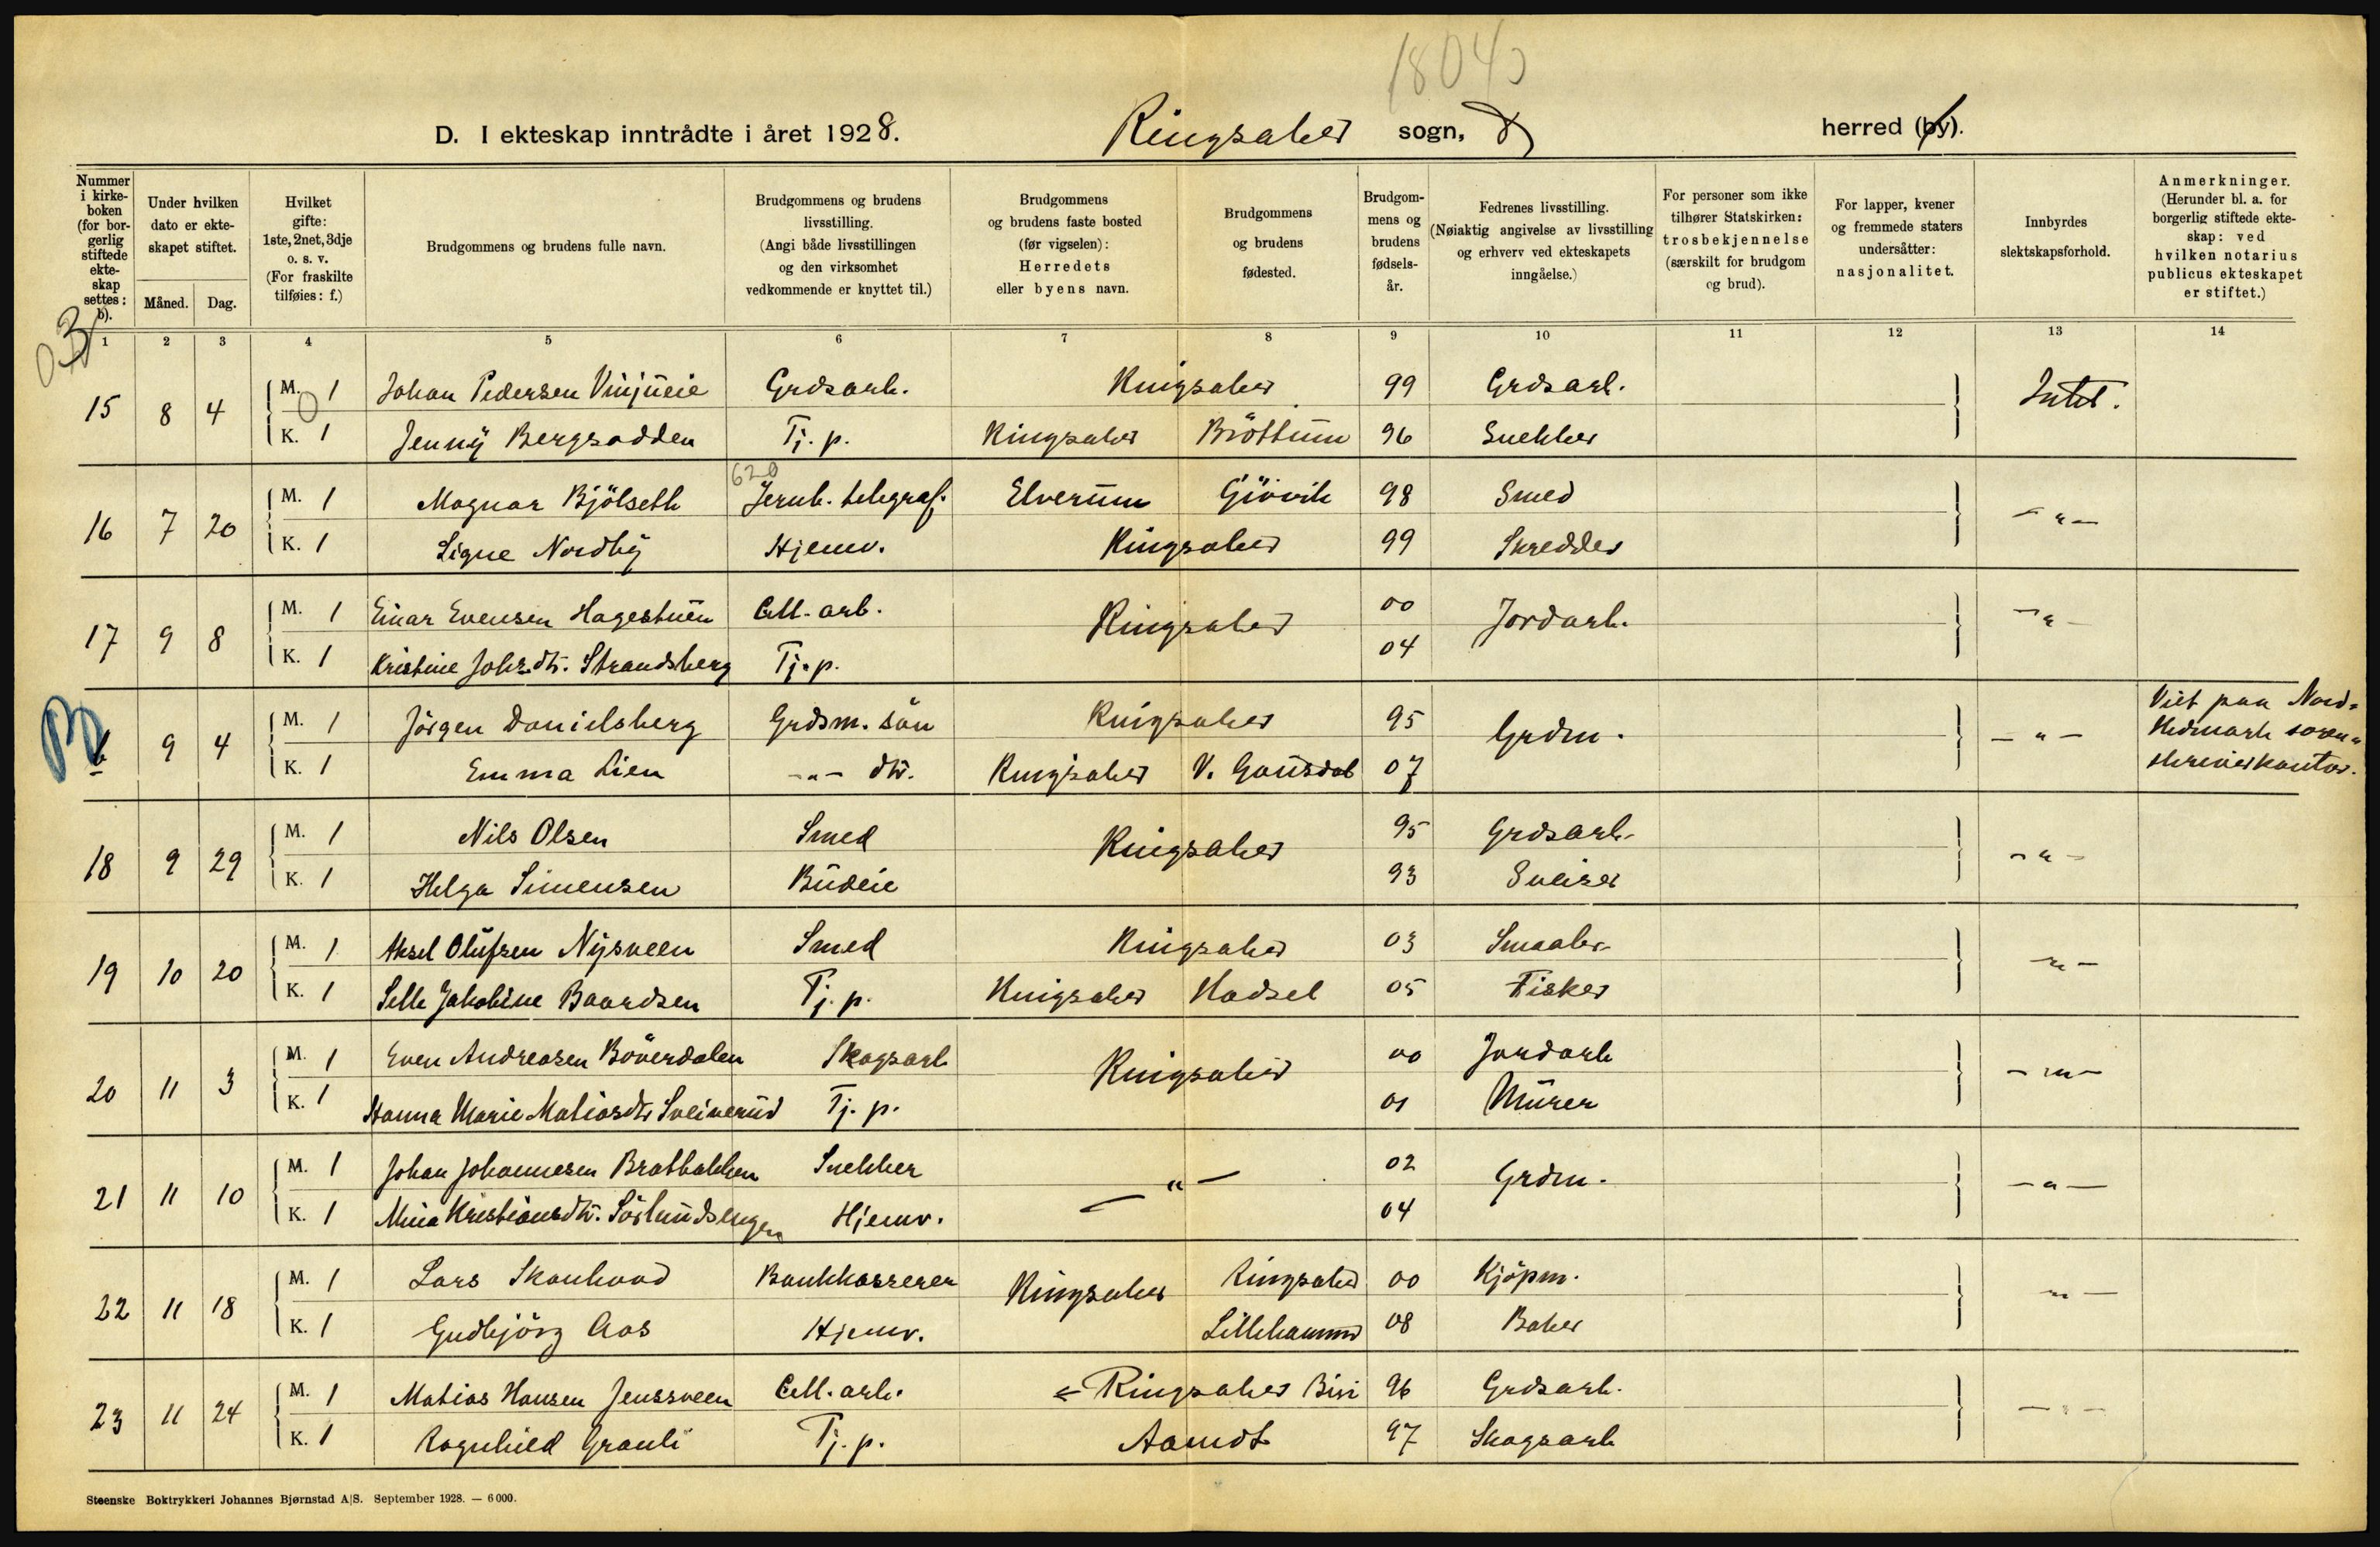 D. I ekteskap inntrådte i året 1928. Ringsaker sogn, herred (by).
Nummer i kirkeboken (for borgerlig stiftede ekteskap settes: b).
Under hvilken dato er ekteskapet stiftet.
Måned. Dag.
Hvilket gifte: 1ste, 2net, 3dje o. s. v. (For fraskilte tilføies: f.)
Brudgommens og brudens fulle navn.
Brudgommens og brudens livsstilling. (Angi både livsstillingen og den virksomhet vedkommende er knyttet til.)
Brudgommens og brudens faste bosted (før vigselen): Herredets eller byens navn.
Brudgommens og brudens fødested.
Brudgommens og brudens fødselsår.
Fedrenes livsstilling. (Nøiaktig angivelse av livsstilling og erhverv ved ekteskapets inngåelse.)
For personer som ikke tilhører Statskirken: trosbekjennelse (særskilt for brudgom og brud).
For lapper, kvener og fremmede staters undersåtter: nasjonalitet.
Innbyrdes slektskapsforhold.
Anmerkninger. (Herunder bl. a. for borgerlig stiftede ekteskap: ved hvilken notarius publicus ekteskapet er stiftet.)
1 2 3 4 5 6 7 8 9 10 11 12 13 14
15 8 4 M. 1 Johan Pedersen Vinjueie Grdsarb. Ringsaker 99 Grdsarb. Intet.
K. 1 Jenny Bergsodden Tj. p. Ringsaker Bröttum 96 Snekker
620
16 7 20 M. 1 Magnar Bjölseth Jernb. telegraf. Elverum Gjövik 98 Smed - " -
K. 1 Signe Nordby Hjemv. Ringsaker 99 Skredder
17 9 8 M. 1 Einar Evensen Hagestuen Cell. arb. Ringsaker 00 Jordarb. - " -
K. 1 Kristine Johsdtr. Strandsberg Tj. p. 04
b 9 4 M. 1 Jörgen Danielsberg Grdsm. sön Ringsaker 95 Grdm. - " - Viet paa Nord-
Hedmark soren-
skriverkontor.
K. 1 Emma Lien - " - dtr. Ringsaker V. Gausdal 07
18 9 29 M. 1 Nils Olsen Smed Ringsaker 95 Grdsarb. - " -
K. 1 Helga Simensen Budeie 93 Sveiser
19 10 20 M. 1 Aksel Olufsen Nysveen Smed Ringsaker 03 Smaabr. - " -
K. 1 Jakobine Baardsen Tj. p. Ringsaker Hadsel 05 Fisker
20 11 3 M. 1 Even Andreasen Böverdalen Skogsarb Ringsaker 00 Jordarb - " -
K. 1 Hanna Marie Matiasdtr Sveinerud Tj. p. 01 Murer
21 11 10 M. 1 Johan Johannesen Bratbakken Snekker - " - 02 Grdm. - " -
K. 1 Mina Kristiansdtr. Sörlundsengen Hjemv. 04
22 11 18 M. 1 Lars Skanhaad Bankkasserer Ringsaker Ringsaker 00 Kjöpm. - " -
K. 1 Gudbjörg Aas Hjemv. Lillehammer 08 Baker
23 11 24 M. 1 Matias Hansen Jenssveen Cell. arb. Ringsaker Biri 96 Grdsarb. - " -
K. 1 Ragnhild Granli Tj. p. Aamot 97 Skogsarb
Steenske Boktrykkeri Johannes Bjørnstad A|S. September 1928. — 6000.